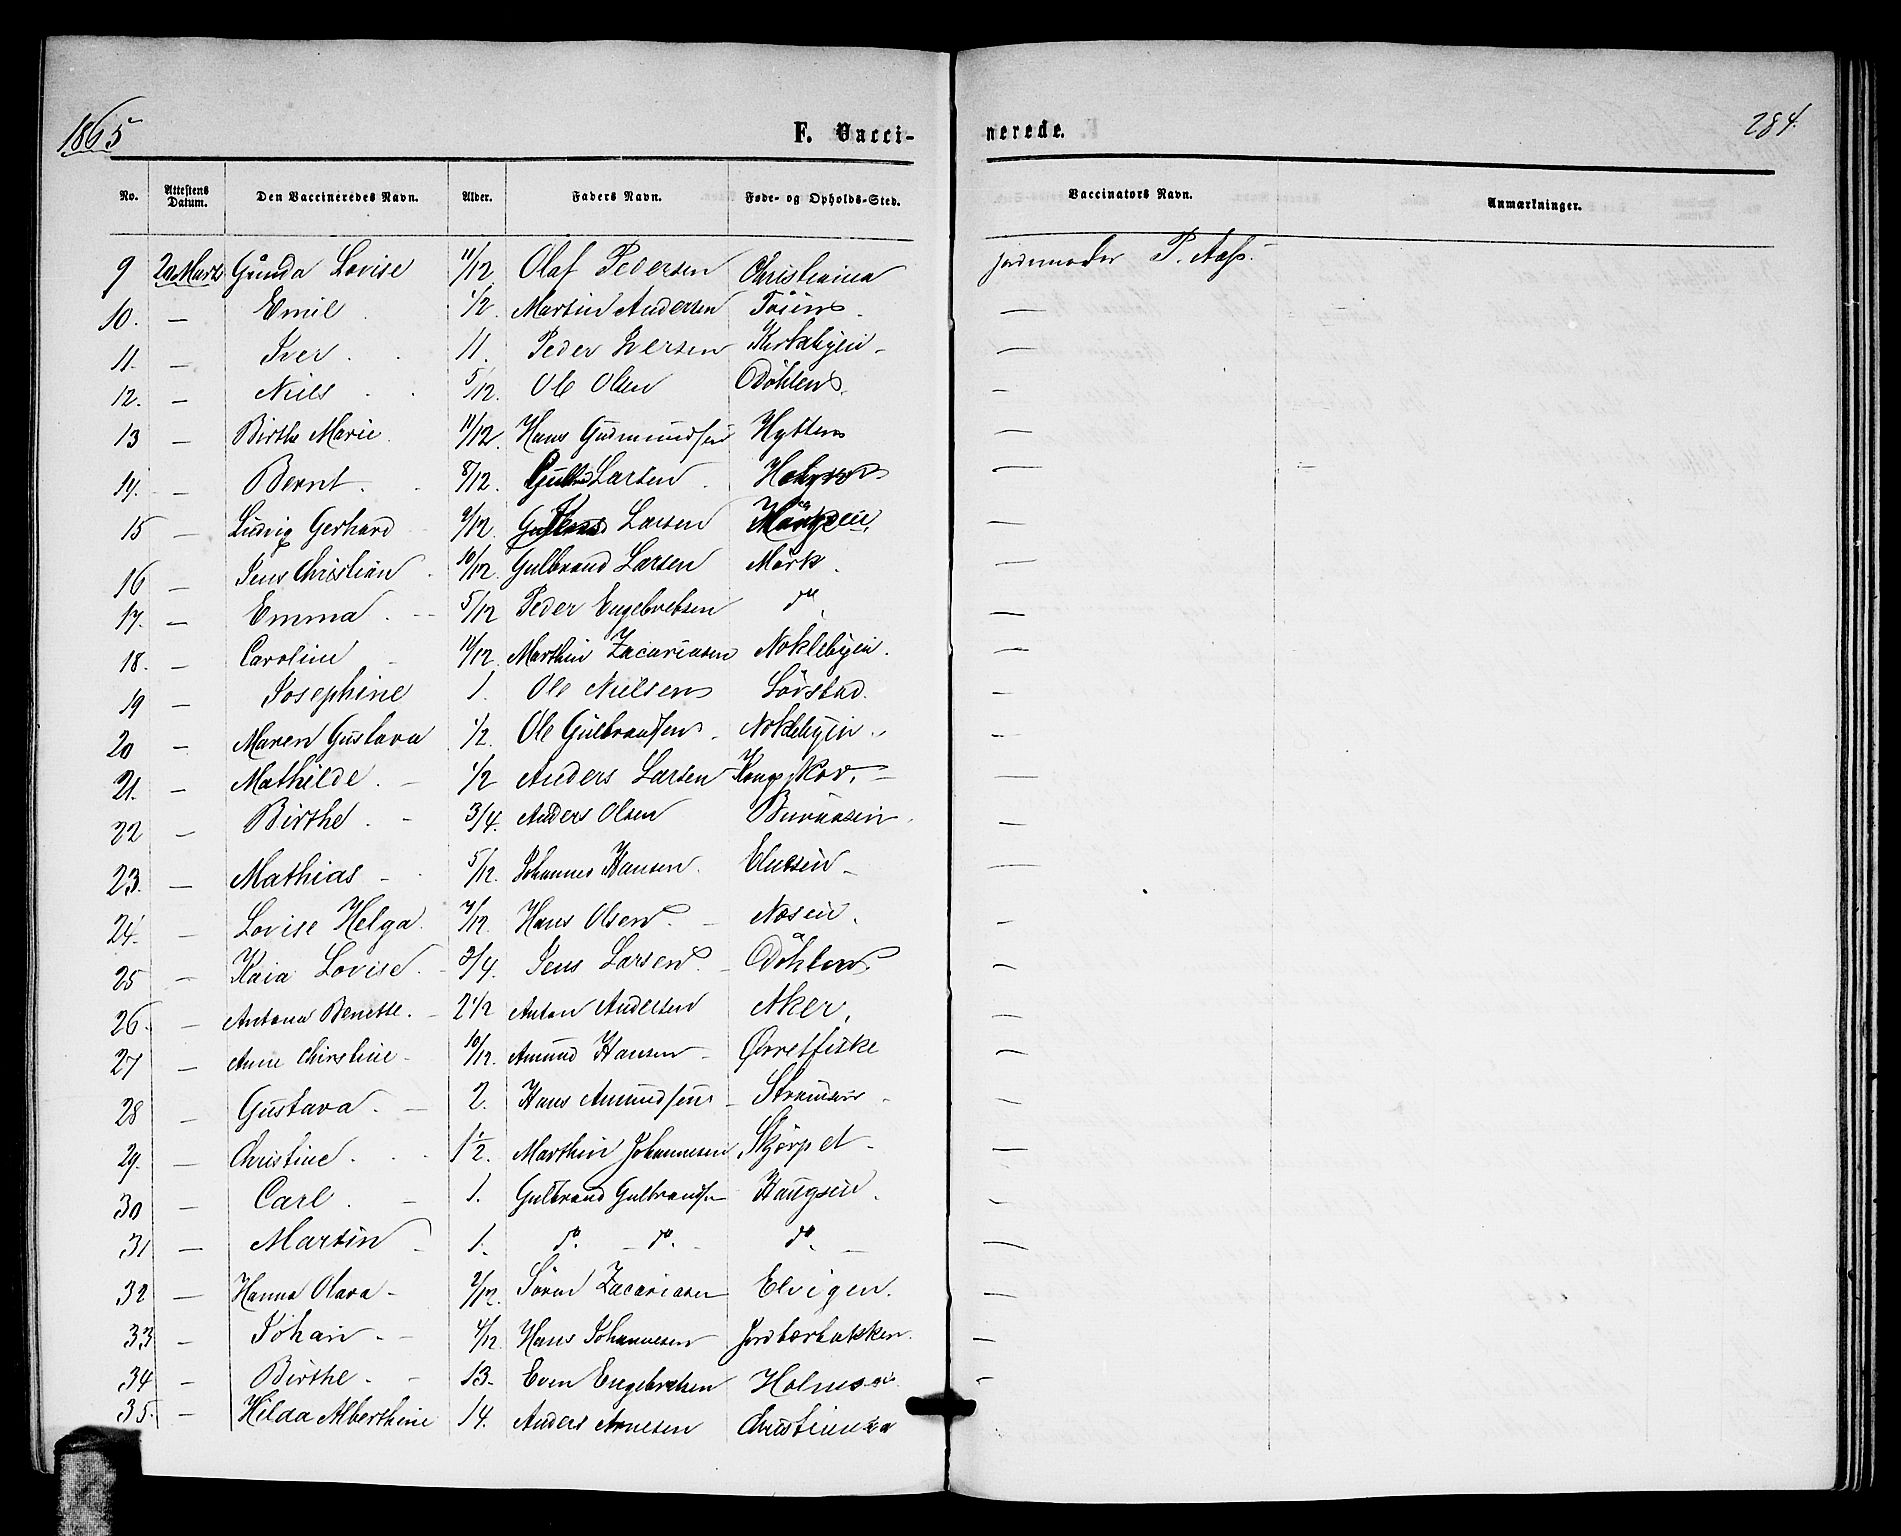 1865
F. Vacci-
nerede.
284.
No. Attestens Datum. Den Vaccineredes Navn. Alder. Faders Navn. Føde- og Opholds-Sted. Vaccinators Navn. Anmærkninger.
9 Marts Gunda Lovise 11/12 Olaf Pedersen Christiania jordemoder P. Aass.
10. — Emil 1/2 Martin Andersen Töien —
11. — Iver 11. Peder Iversen Kirkebyen —
12. — Niels 5/12. Ole Olsen Döhlen —
13 — Birthe Marie 11/12. Hans Gudmundsen Hytten —
14. — Bernt 8/12. Larsen —
15 — Ludvig Gerhard 9/12. Larsen —
16 — Jens Christian 10/12. Gulbrand Larsen Mörk —
17. — Emma 5/12 Peder Engebretsen do —
18. — Caroline 11/12. Marthin Zacariasen Noklebyen —
19 — Josephine 1. Ole Nielsen Lövstad —
20 — Maren Gustava 1/2. Ole Gulbrandsen Noklebyen —
21. — Mathilde 1/2 Anders Larsen Kongsskov —
22 — Birthe 3/4. Anders Olsen —
23. — Mathias 5/12. Johannes Hansen —
24. — Lovise Helga 7/12. Hans Olsen Nosen —
25 — Kaia Lovise 3/4. Jens Larsen Döhlen —
26. — Antona Benette 2 1/2 Anton Andersen Aker. —
27 — Anne Christine 10/12. Amund Hansen Ørretfiske —
28 — Gustava 2. Hans Amundsen —
29. — Christine 1 1/2. Marthin Johannesen Skjörpet —
30 — Carl 1. Gulbrand Gulbrandsen Haugsen —
31 — Martin 1. do do do —
32 — Hanna Olava 2/12. Sören Zacariasen Elvigen. —
33 — Johan 4/12. Hans Johannesen Jordbærbakken. —
34 — Birthe 13. Even Engebretsen —
35. — Hilda Alberthine 14. Anders Arnesen Christiania